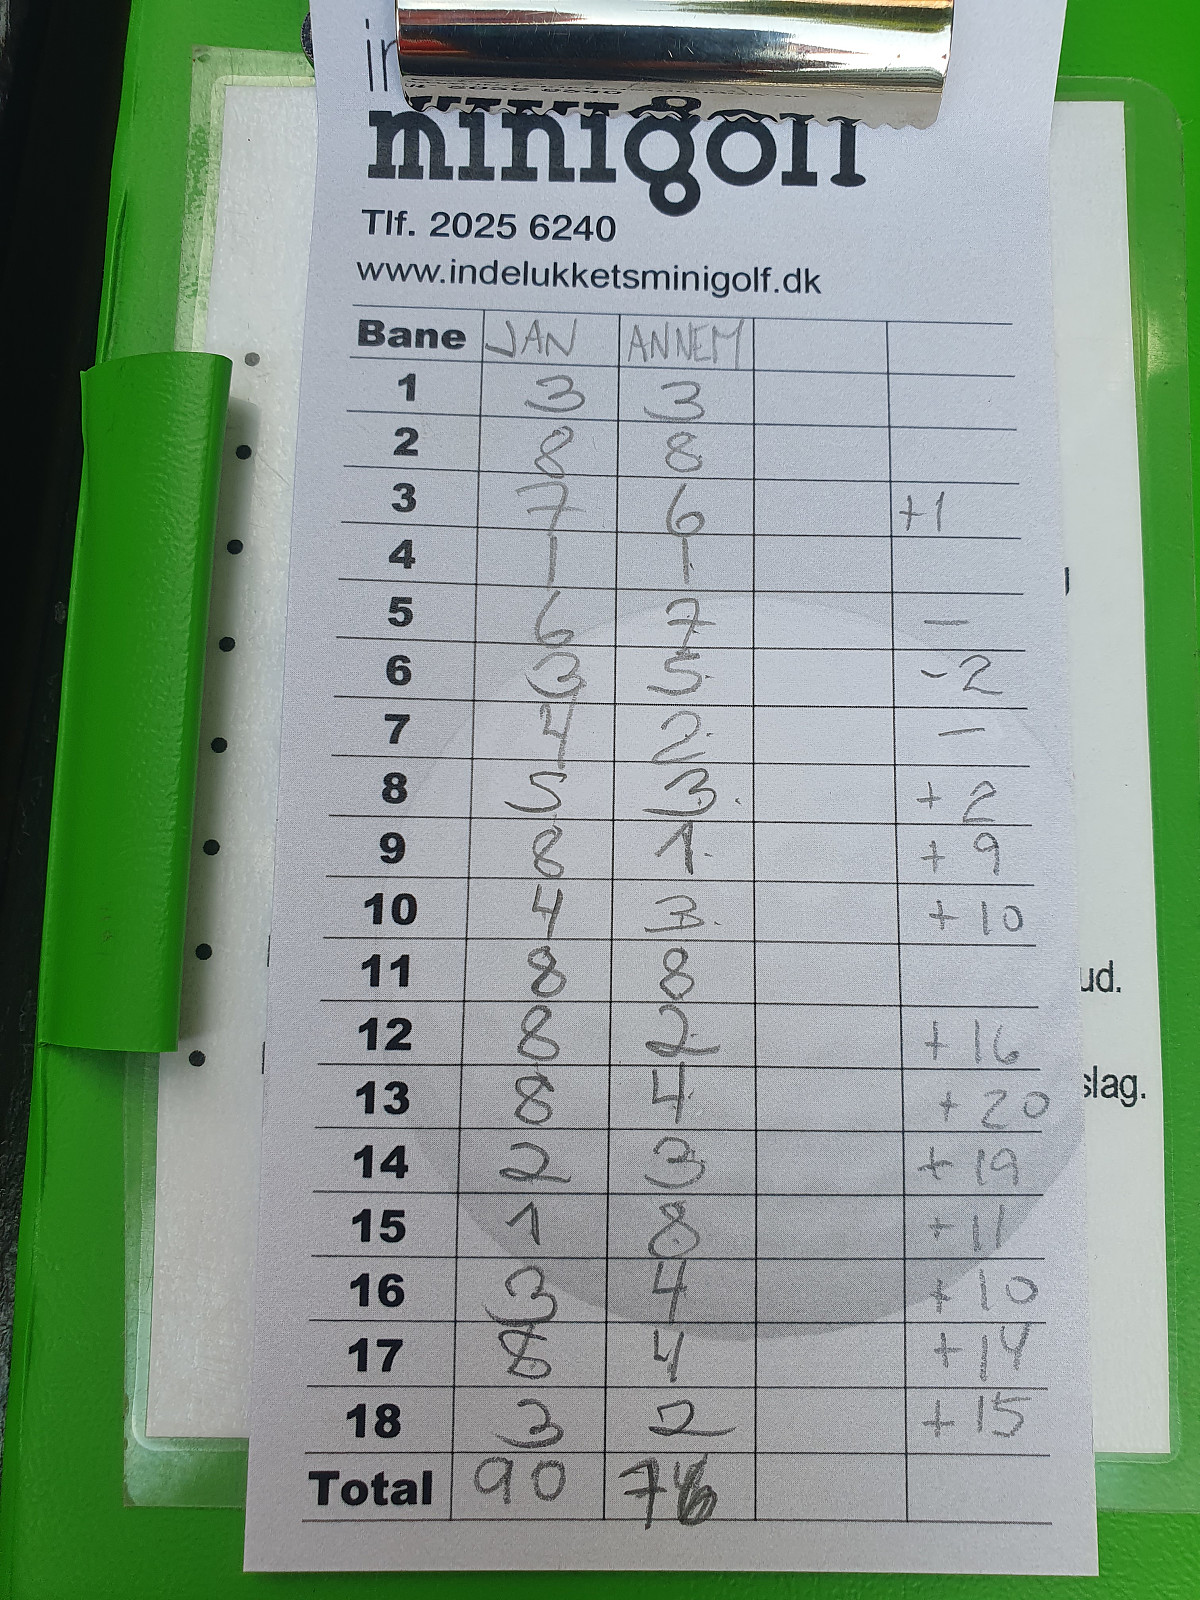 minigolf
Tlf. 2025 6240
www.indelukketsminigolf.dk
Bane JAN ANNEM
1 3 3
2 8 8
3 7 6 +1
4 1 1
5 6 7 —
6 3 5 -2
7 4 2 —
8 5 3 +2
9 8 1 +9
10 4 3 +10
11 8 8
ud.
12 8 2 +16
13 8 4 +20
slag.
14 2 3 +19
15 1 8 +11
16 3 4 +10
17 8 4 +14
18 3 2 +15
Total 90